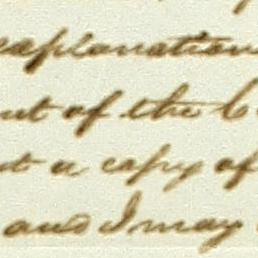 explanation
of the
a copy of
and I may